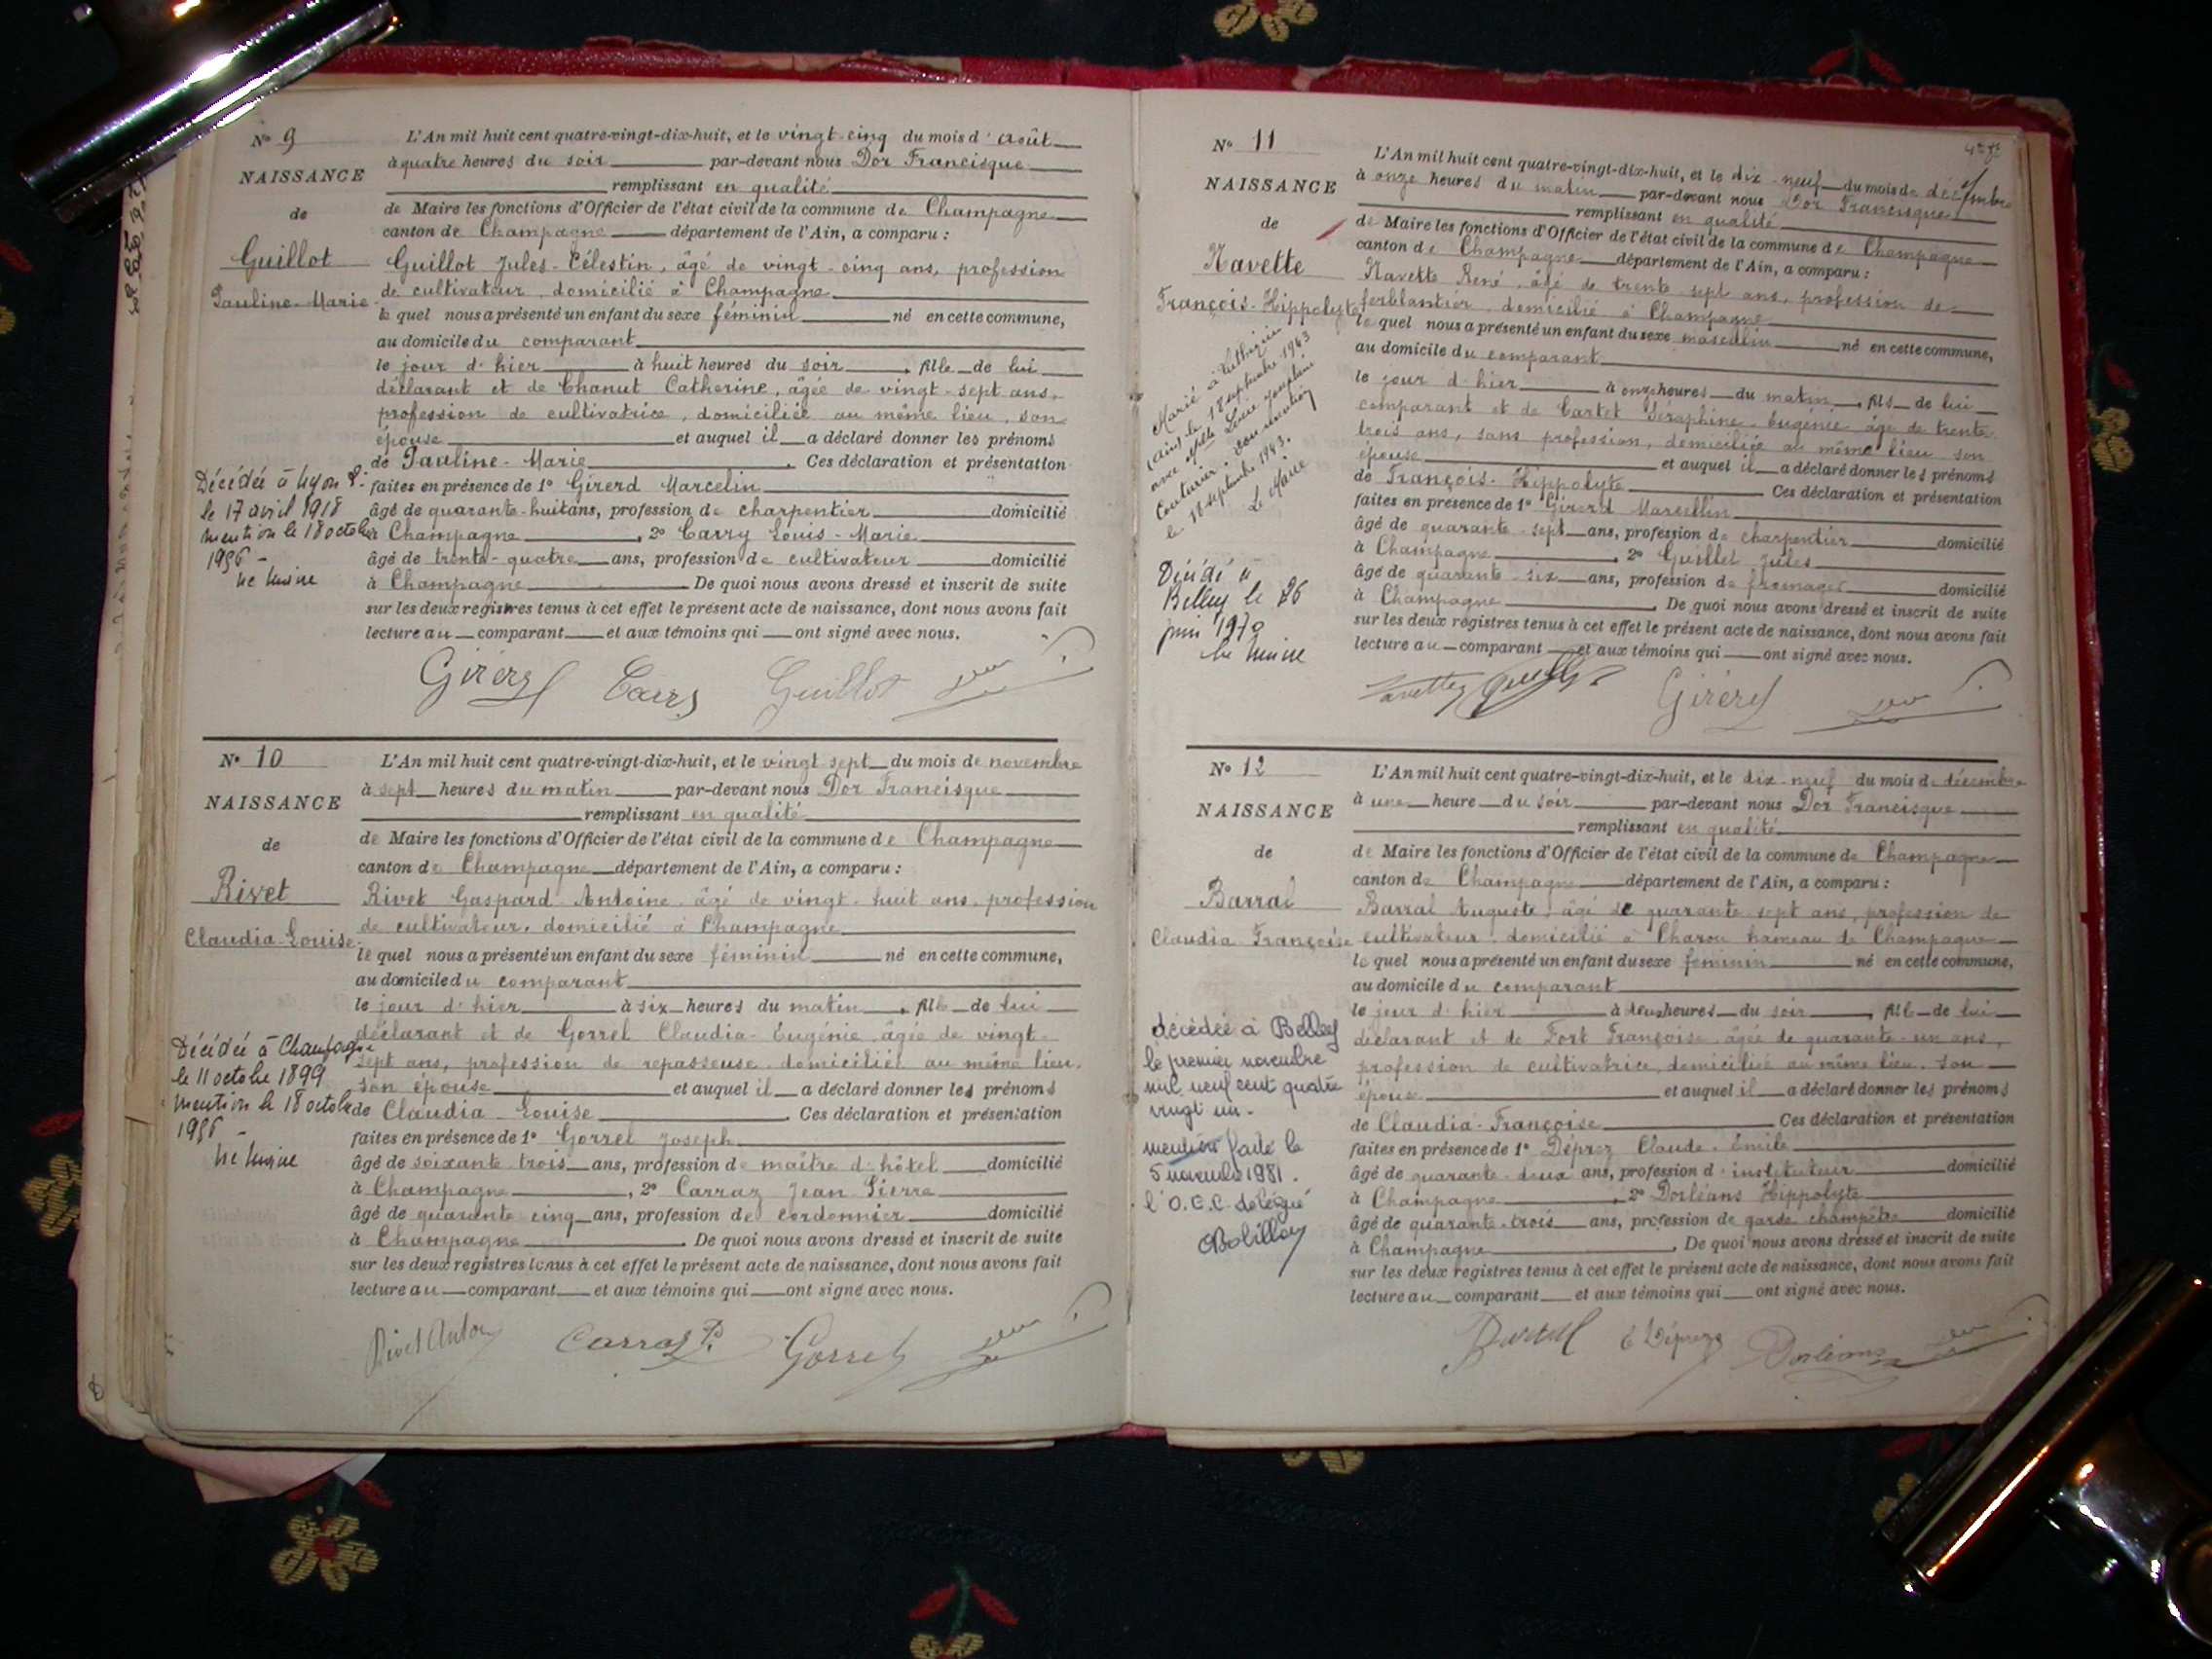 N° 9
NAISSANCE
de
Guillot
Pauline-Marie
L'An mil huit cent quatre-vingt-dix-huit, et le vingt-cinq du mois d'août
à quatre heures du soir par-devant nous Dor Francisque
remplissant en qualité
de Maire les fonctions d'Officier de l'état civil de la commune de Champagne
canton de Champagne département de l'Ain, a comparu :
Guillot Jules-Célestin, âgé de vingt-cinq ans, profession
de cultivateur, domicilié à Champagne
le quel nous a présenté un enfant du sexe féminin né en cette commune,
au domicile du comparant
le jour d'hier à huit heures du soir, fille de lui
déclarant et de Chanut Catherine, âgée de vingt-sept ans,
profession de cultivatrice, domiciliée au même lieu, son
épouse et auquel il a déclaré donner les prénoms
de Pauline-Marie. Ces déclaration et présentation
faites en présence de 1° Girerd Marcelin
âgé de quarante-huit ans, profession de charpentier domicilié
à Champagne, 2° Carry Louis-Marie
âgé de trente-quatre ans, profession de cultivateur domicilié
à Champagne De quoi nous avons dressé et inscrit de suite
sur les deux registres tenus à cet effet le présent acte de naissance, dont nous avons fait
lecture au comparant et aux témoins qui ont signé avec nous.
Décédée à Lyon
le 17 avril 1918
mention le 18 octobre
1956 -
Le Maire
Girerd Carry Guillot
N° 10
NAISSANCE
de
Rivet
Claudia-Louise
L'An mil huit cent quatre-vingt-dix-huit, et le vingt sept du mois de novembre
à sept heures du matin par-devant nous Dor Francisque
remplissant en qualité
de Maire les fonctions d'Officier de l'état civil de la commune de Champagne
canton de Champagne département de l'Ain, a comparu :
Rivet Gaspard-Antoine âgé de vingt-huit ans, profession
de cultivateur, domicilié à Champagne
le quel nous a présenté un enfant du sexe féminin né en cette commune,
au domicile du comparant
le jour d'hier à six heures du matin, fille de lui
déclarant et de Gorrel Claudia-Eugénie âgée de vingt-
sept ans, profession de repasseuse domiciliée au même lieu,
son épouse et auquel il a déclaré donner les prénoms
de Claudia Louise. Ces déclaration et présentation
faites en présence de 1° Gorrel Joseph
âgé de soixante-trois ans, profession de maître d'hôtel domicilié
à Champagne, 2° Carraz Jean Pierre
âgé de quarante cinq ans, profession de cordonnier domicilié
à Champagne. De quoi nous avons dressé et inscrit de suite
sur les deux registres tenus à cet effet le présent acte de naissance, dont nous avons fait
lecture au comparant et aux témoins qui ont signé avec nous.
Décédée à Champagne
le 11 octobre 1899
mention le 18 octobre
1956 -
Le Maire
Rivet Carraz P. Gorrel
N° 11
NAISSANCE
de
Navette
François-Hippolyte
L'An mil huit cent quatre-vingt-dix-huit, et le dix-neuf du mois de décembre
à onze heures du matin par-devant nous Dor Francisque
remplissant en qualité
de Maire les fonctions d'Officier de l'état civil de la commune de Champagne
canton de Champagne département de l'Ain, a comparu :
Navette René, âgé de trente-sept ans, profession de
ferblantier, domicilié à Champagne
le quel nous a présenté un enfant du sexe masculin né en cette commune,
au domicile du comparant
le jour d'hier à onze heures du matin, fils de lui
comparant et de Cartet Séraphine-Eugénie âgé de trente
trois ans, sans profession, domiciliée au même lieu son
épouse et auquel il a déclaré donner les prénoms
de François-Hippolyte Ces déclaration et présentation
faites en présence de 1° Girerd Marcellin
âgé de quarante-sept ans, profession de charpentier domicilié
à Champagne, 2° Guillet Jules
âgé de quarante-six ans, profession de fromager domicilié
à Champagne. De quoi nous avons dressé et inscrit de suite
sur les deux registres tenus à cet effet le présent acte de naissance, dont nous avons fait
lecture au comparant et aux témoins qui ont signé avec nous.
Marié à
(Ain) le 18 septembre 1943
avec
Couturier. Dont mention
le 18 septembre 1943.
Le Maire
Décédé à
Belley le 26
juin 1970
Le Maire
Navette Girerd
N° 12
NAISSANCE
de
Barral
Claudia Françoise
L'An mil huit cent quatre-vingt-dix-huit, et le dix-neuf du mois de décembre
à une heure du soir par-devant nous Dor Francisque
remplissant en qualité
de Maire les fonctions d'Officier de l'état civil de la commune de Champagne
canton de Champagne département de l'Ain, a comparu :
Barral Auguste, âgé de quarante-sept ans, profession de
cultivateur domicilié à Charon hameau de Champagne
le quel nous a présenté un enfant du sexe féminin né en cette commune,
au domicile du comparant
le jour d'hier à deux heures du soir, fille de lui
déclarant et de Fort Françoise âgée de quarante-un ans,
profession de cultivatrice, domiciliée au même lieu, son
épouse et auquel il a déclaré donner les prénoms
de Claudia-Françoise Ces déclaration et présentation
faites en présence de 1° Déprez Claude-Emile
âgé de quarante-deux ans, profession d'instituteur domicilié
à Champagne, 2° Dorléans Hippolyte
âgé de quarante-trois ans, profession de garde champêtre domicilié
à Champagne. De quoi nous avons dressé et inscrit de suite
sur les deux registres tenus à cet effet le présent acte de naissance, dont nous avons fait
lecture au comparant et aux témoins qui ont signé avec nous.
décédée à Belley
le premier novembre
mil neuf cent quatre
vingt un.
mention faite le
5 novembre 1981.
l'O.E.C. délégué
Barral E Déprez Dorléans